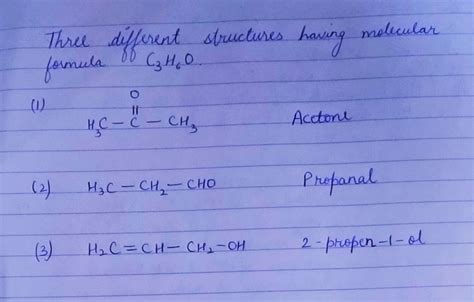 Three different structures having molecular
formula of C₃H₆O.
(1)
O
||
H₃C – C – CH₃ Acetone
(2) H₃C – CH₂ – CHO Propanal
(3) H₂C = CH – CH₂ – OH 2-propen-1-ol